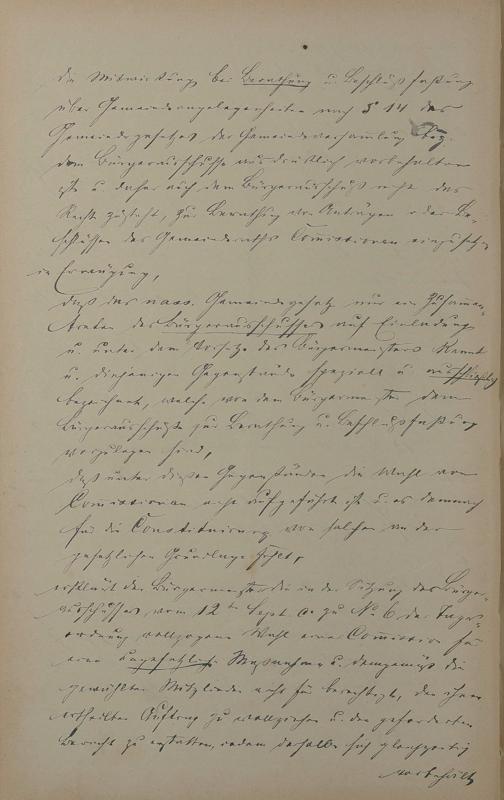 die Mitwirkung bei Berathung u. Beschlußfassung
über Gemeindeangelegenheiten nach § 14 des
Gemeindegesetzes der Gemeindeversammlung bez.
dem Bürgerausschusse ausdrücklich vorbehalten
ist u. daher auch dem Bürgerausschuß nicht das
Recht zusteht, zur Berathung von Anträgen oder Be-
schlüssen des Gemeinderaths Commissionen einzusetzen
in Erwägung,
daß das nass. Gemeindegesetz nur ein Zusammen-
treten des Bürgerausschusses auf Einladung
u. unter dem Vorsitze des Bürgermeisters kennt
u. diejenigen Gegenstände speziell u. ausschließlich
bezeichnet, welche von dem Bürgermeister dem
Bürgerausschusse zur Berathung u. Beschlußfassung
vorzulegen sind,
daß unter diesen Gegenständen die Wahl von
Commissionen nicht aufgeführt ist u. es demnach
für die Constituirung von solchen an der
gesetzlichen Grundlage fehlt,
erklärt der Bürgermeister die in der Sitzung des Bürger-
ausschusses vom 12ten Sept. c. zu No 6 der Tages-
ordnung vollzogene Wahl einer Commission für
eine ungesetzliche Maßnahme u. demgemäß die
gewählten Mitglieder nicht für berechtigt, den ihnen
ertheilten Auftrag zu vollziehen u. den geforderten
Bericht zu erstatten, indem derselbe sich gleichzeitig
vorbehält